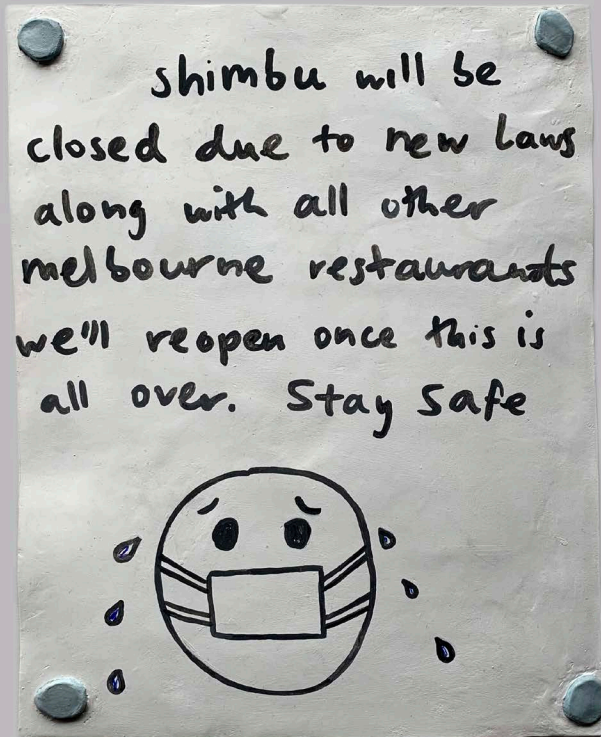 shimbu will be
closed due to new laws
along with all other
melbourne restaurants
we'll reopen once this is
all over. Stay safe